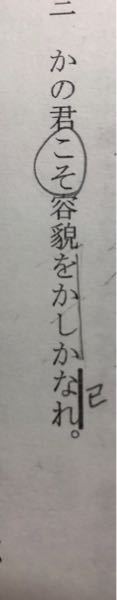 二 かの君こそ容貌をかしかなれ。
已